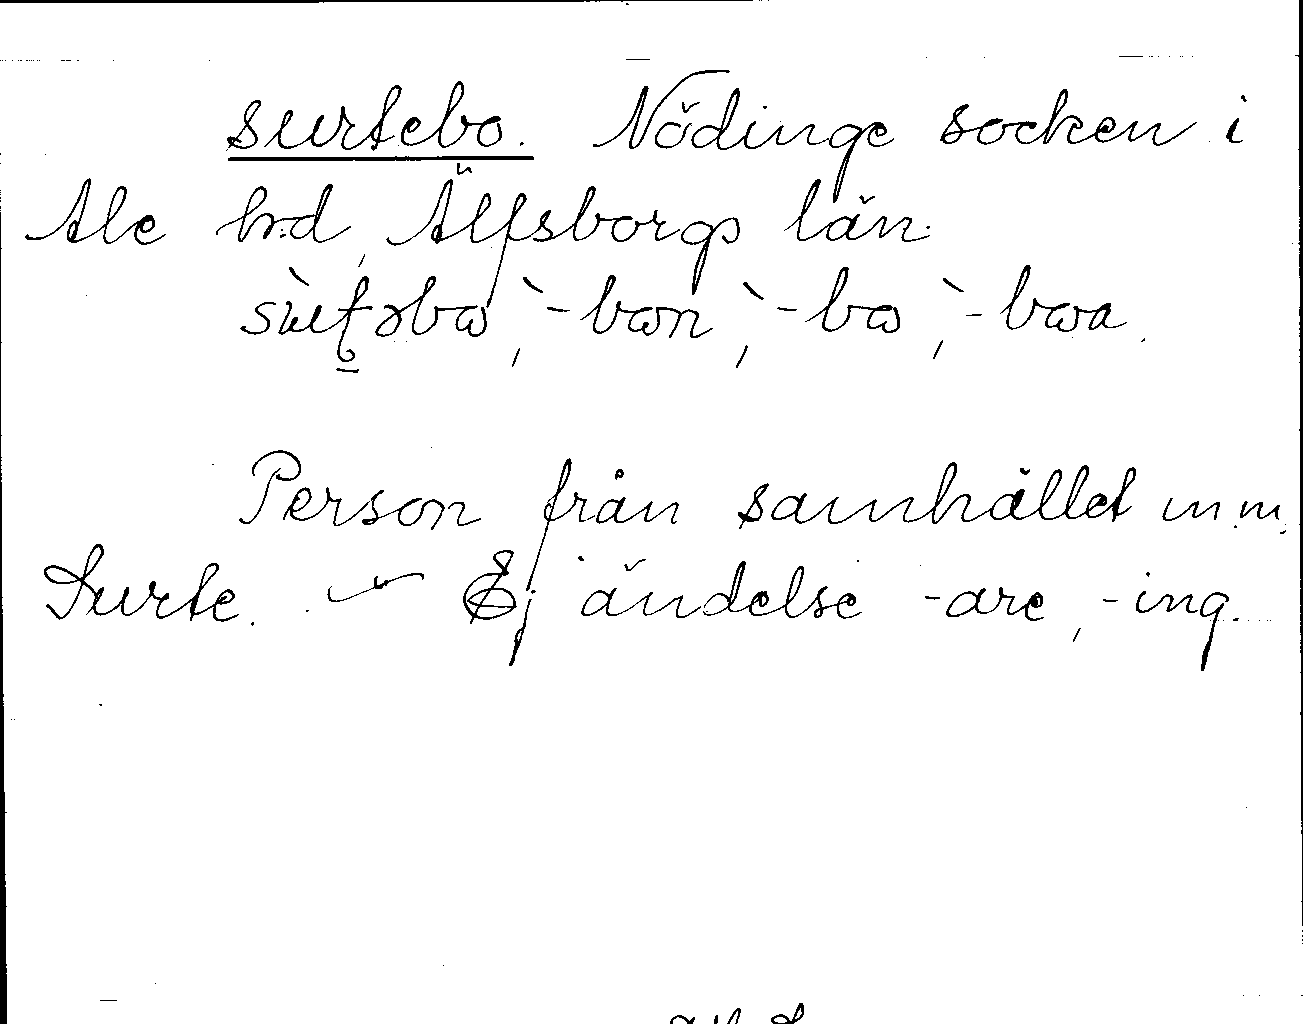 surtebo. Nödinge socken i
Ale hd, Älfsborgs län.
Person från samhället m.m.
Surte. — Ej ändelse -are, -ing.